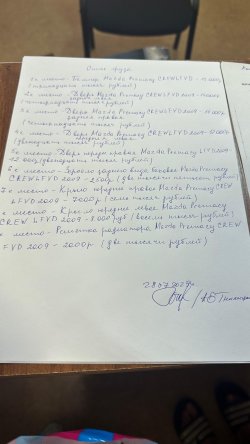 Опись груза
1 е место - Бампер Mazda Premacy CREWLFVD - 13 000р
(тринадцать тысяч рублей)
2 е место - Дверь Mazda Premacy CREWLFVD 2009 -
(четырнадцать тысяч рублей)
3 е место - Дверь Mazda Premacy CREWLFVD 2009 -
задняя правая
(четырнадцать тысяч рублей)
4 е место - Дверь Mazda Premacy CREWLFVD 2009 -
(двенадцать тысяч рублей)
5 е место - Дверь передняя правая Mazda Premacy CREWLFVD 2009
12 000 (двенадцать тысяч рублей)
6 е место - Зеркало заднего вида боковое Mazda Premacy
CREWLFVD 2009 -
7 е место - Крыло переднее правое Mazda Premacy CREW
LFVD 2009 - 7000р (семь тысяч рублей)
е место - Крыло переднее левое Mazda Premacy
CREW LFVD 2009 - 8 000 руб (восемь тысяч рублей)
место - Решетка радиатора Mazda Premacy CREW
LFVD 2009 - 2000р (две тысячи рублей)
28.07.2024г